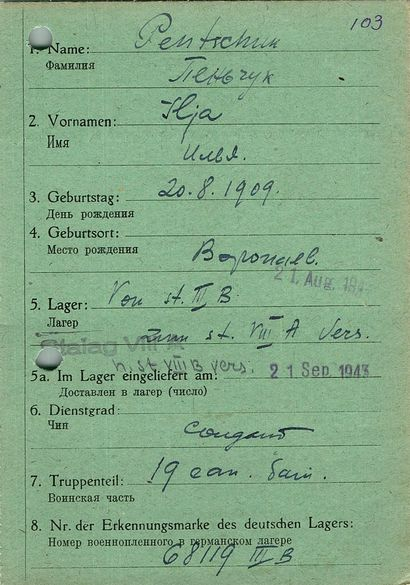 103
1. Name: Pentschuk
Фамилия
Пеньчук
2. Vornamen: Ilja
Имя
Илья.
3. Geburtstag: 20.8.1909.
День рождения
4. Geburtsort:
Место рождения
Воропаев.
21. Aug.
5. Lager: Von st. III B
Лагер
zum st. VIII A Vers.
Stalag
n. st VIII B vers.
5a. Im Lager eingeliefert am: 21 Sep. 1943
Доставлен в лагер (число)
6. Dienstgrad:
Чин
солдат
7. Truppenteil: 19 сап. бат.
Воинская часть
8. Nr. der Erkennungsmarke des deutschen Lagers:
Номер военнопленного в германском лагере
68119 III B